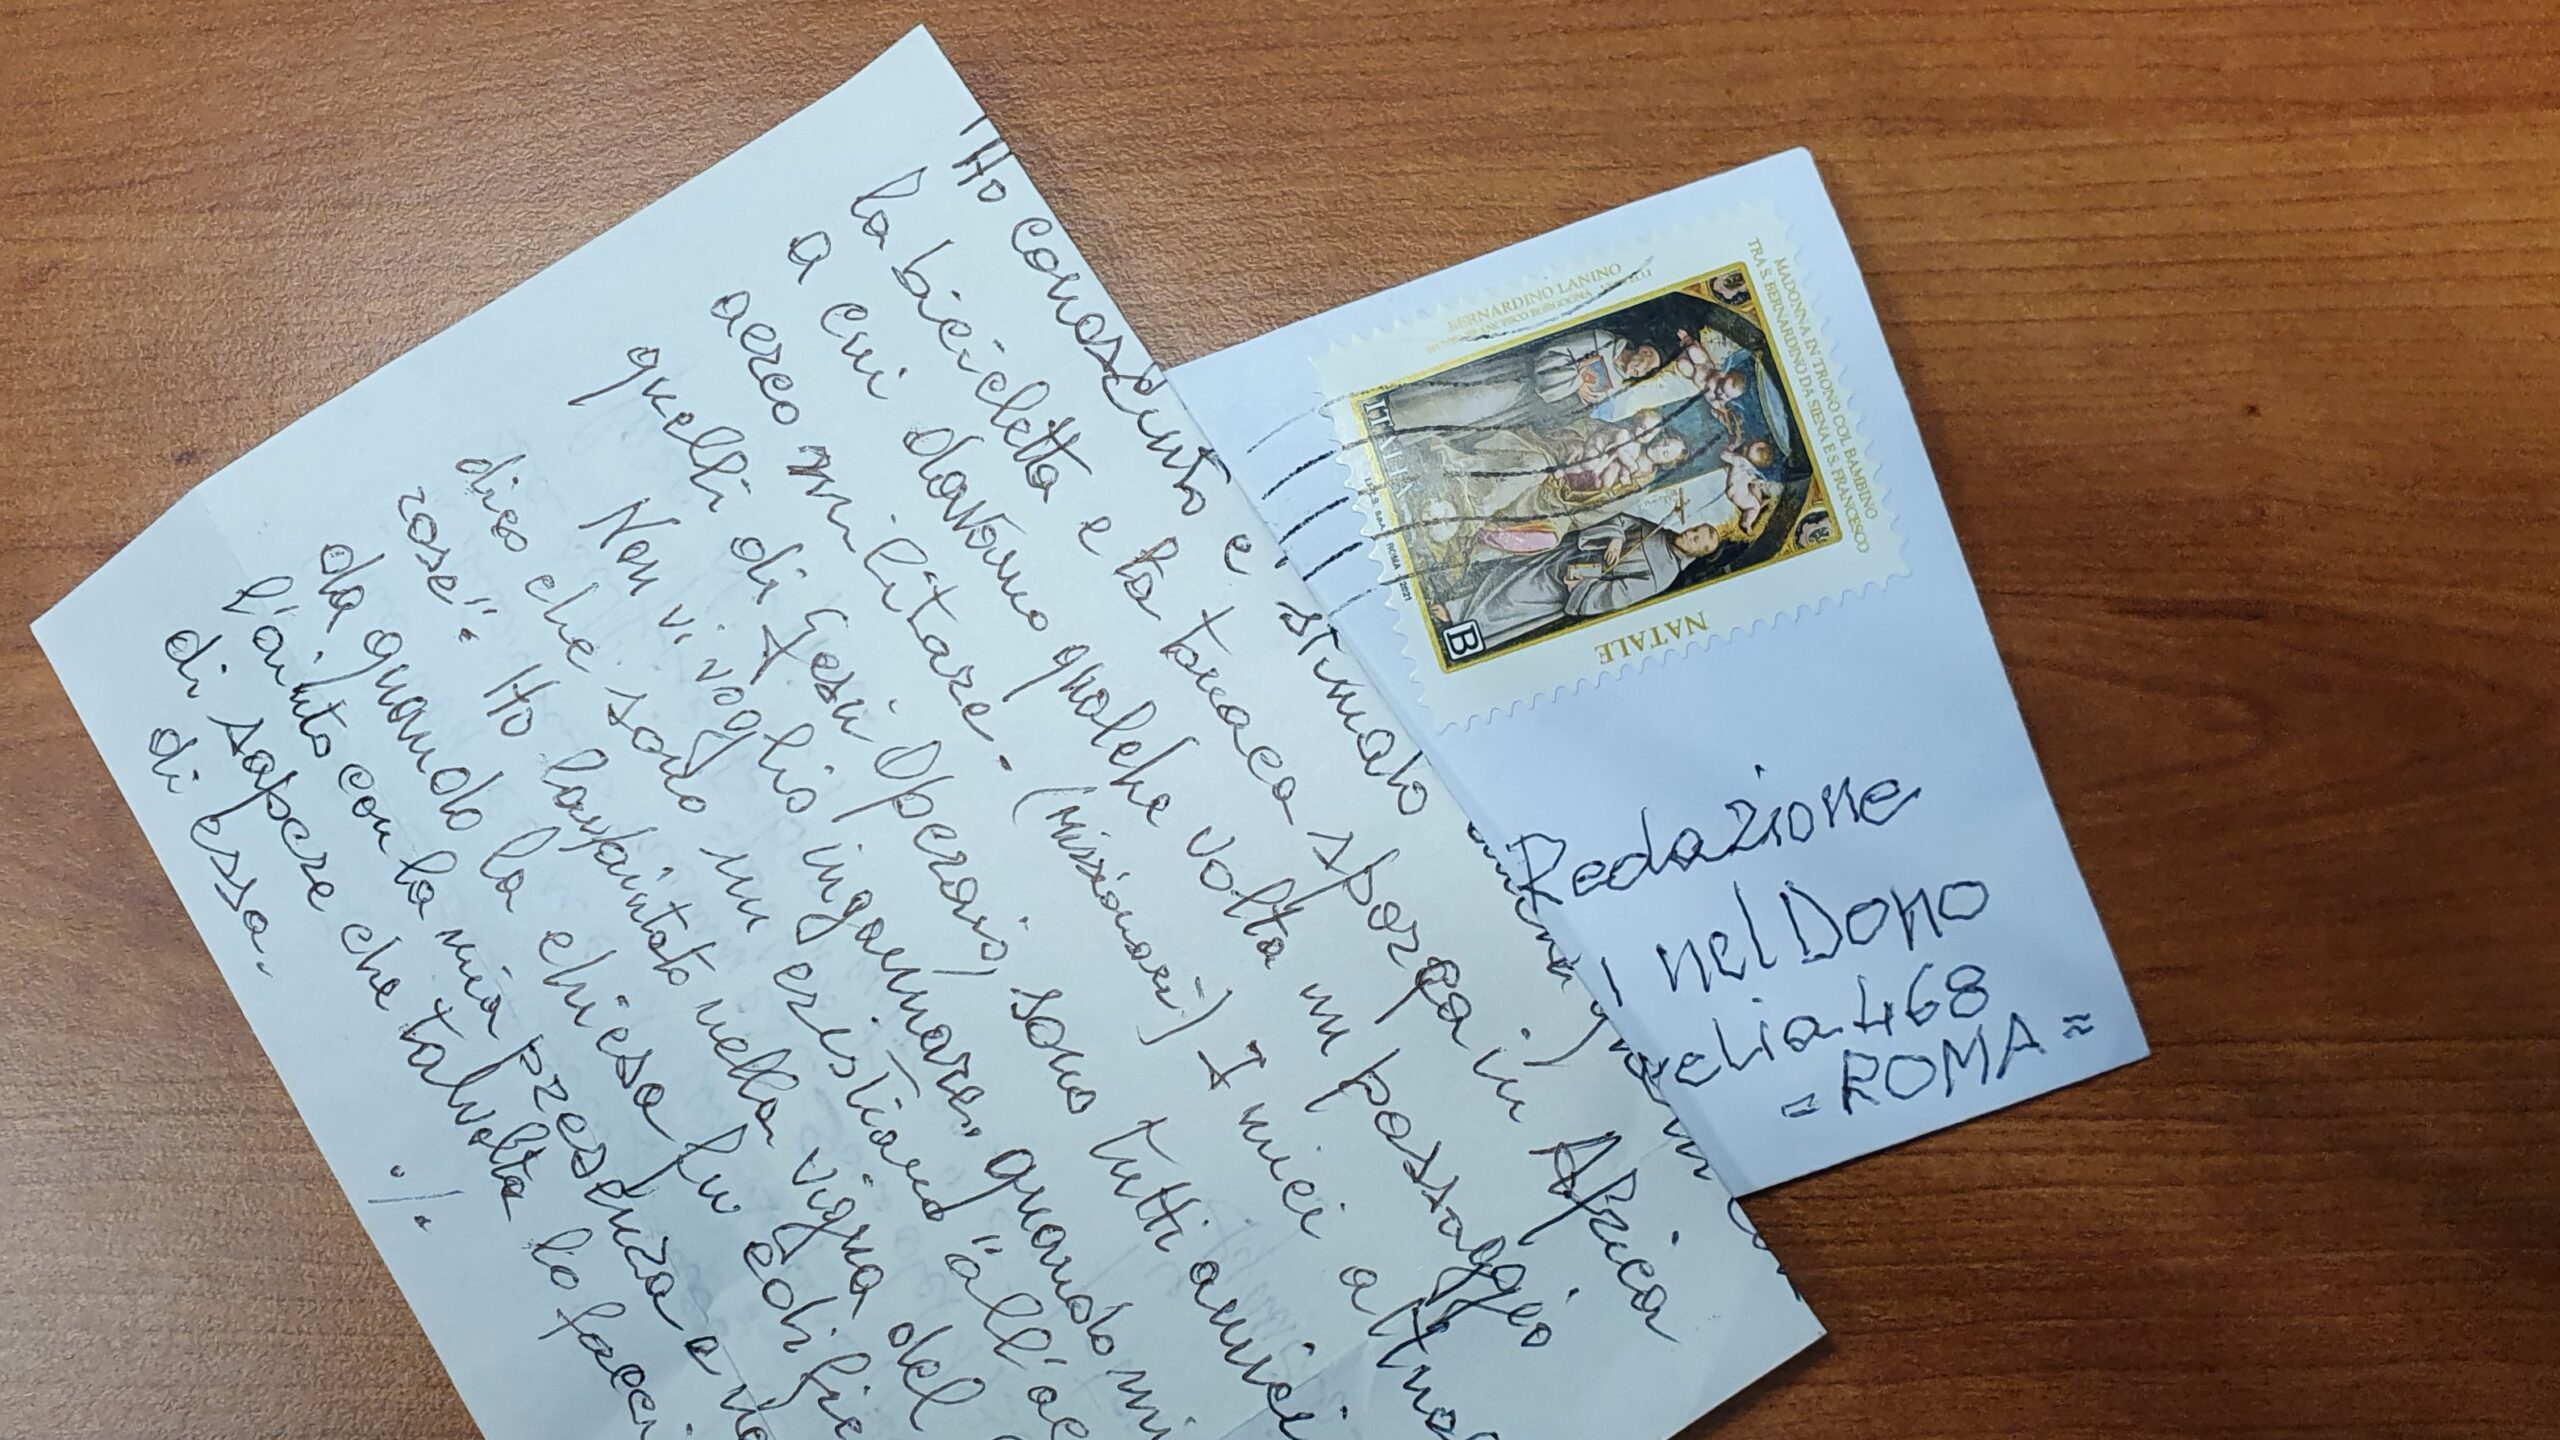 Ho conosciuto e stimato
la bicicletta e la tonaca sporca in Africa
a cui davamo qualche volta un passaggio
aereo militare. (Missionari) I miei
quelli di Gesù Operaio, sono tutti amici
Non vi voglio ingannare, quando mi
dico che sono un cristiano "all'ac
rose". Ho lavorato nella vigna del
da quando la chiesa fu edific
l'aiuto con la mia presenza e
di sapere che talvolta lo facci
di essa.
./.
BERNARDINO LANINO
MADONNA IN TRONO COL BAMBINO
TRA S. BERNARDINO DA SIENA E S. FRANCESCO
ITALIA
I.P.Z.S. S.p.A. ROMA 2021
B
NATALE
Redazione
nel Dono
relia 468
= ROMA =